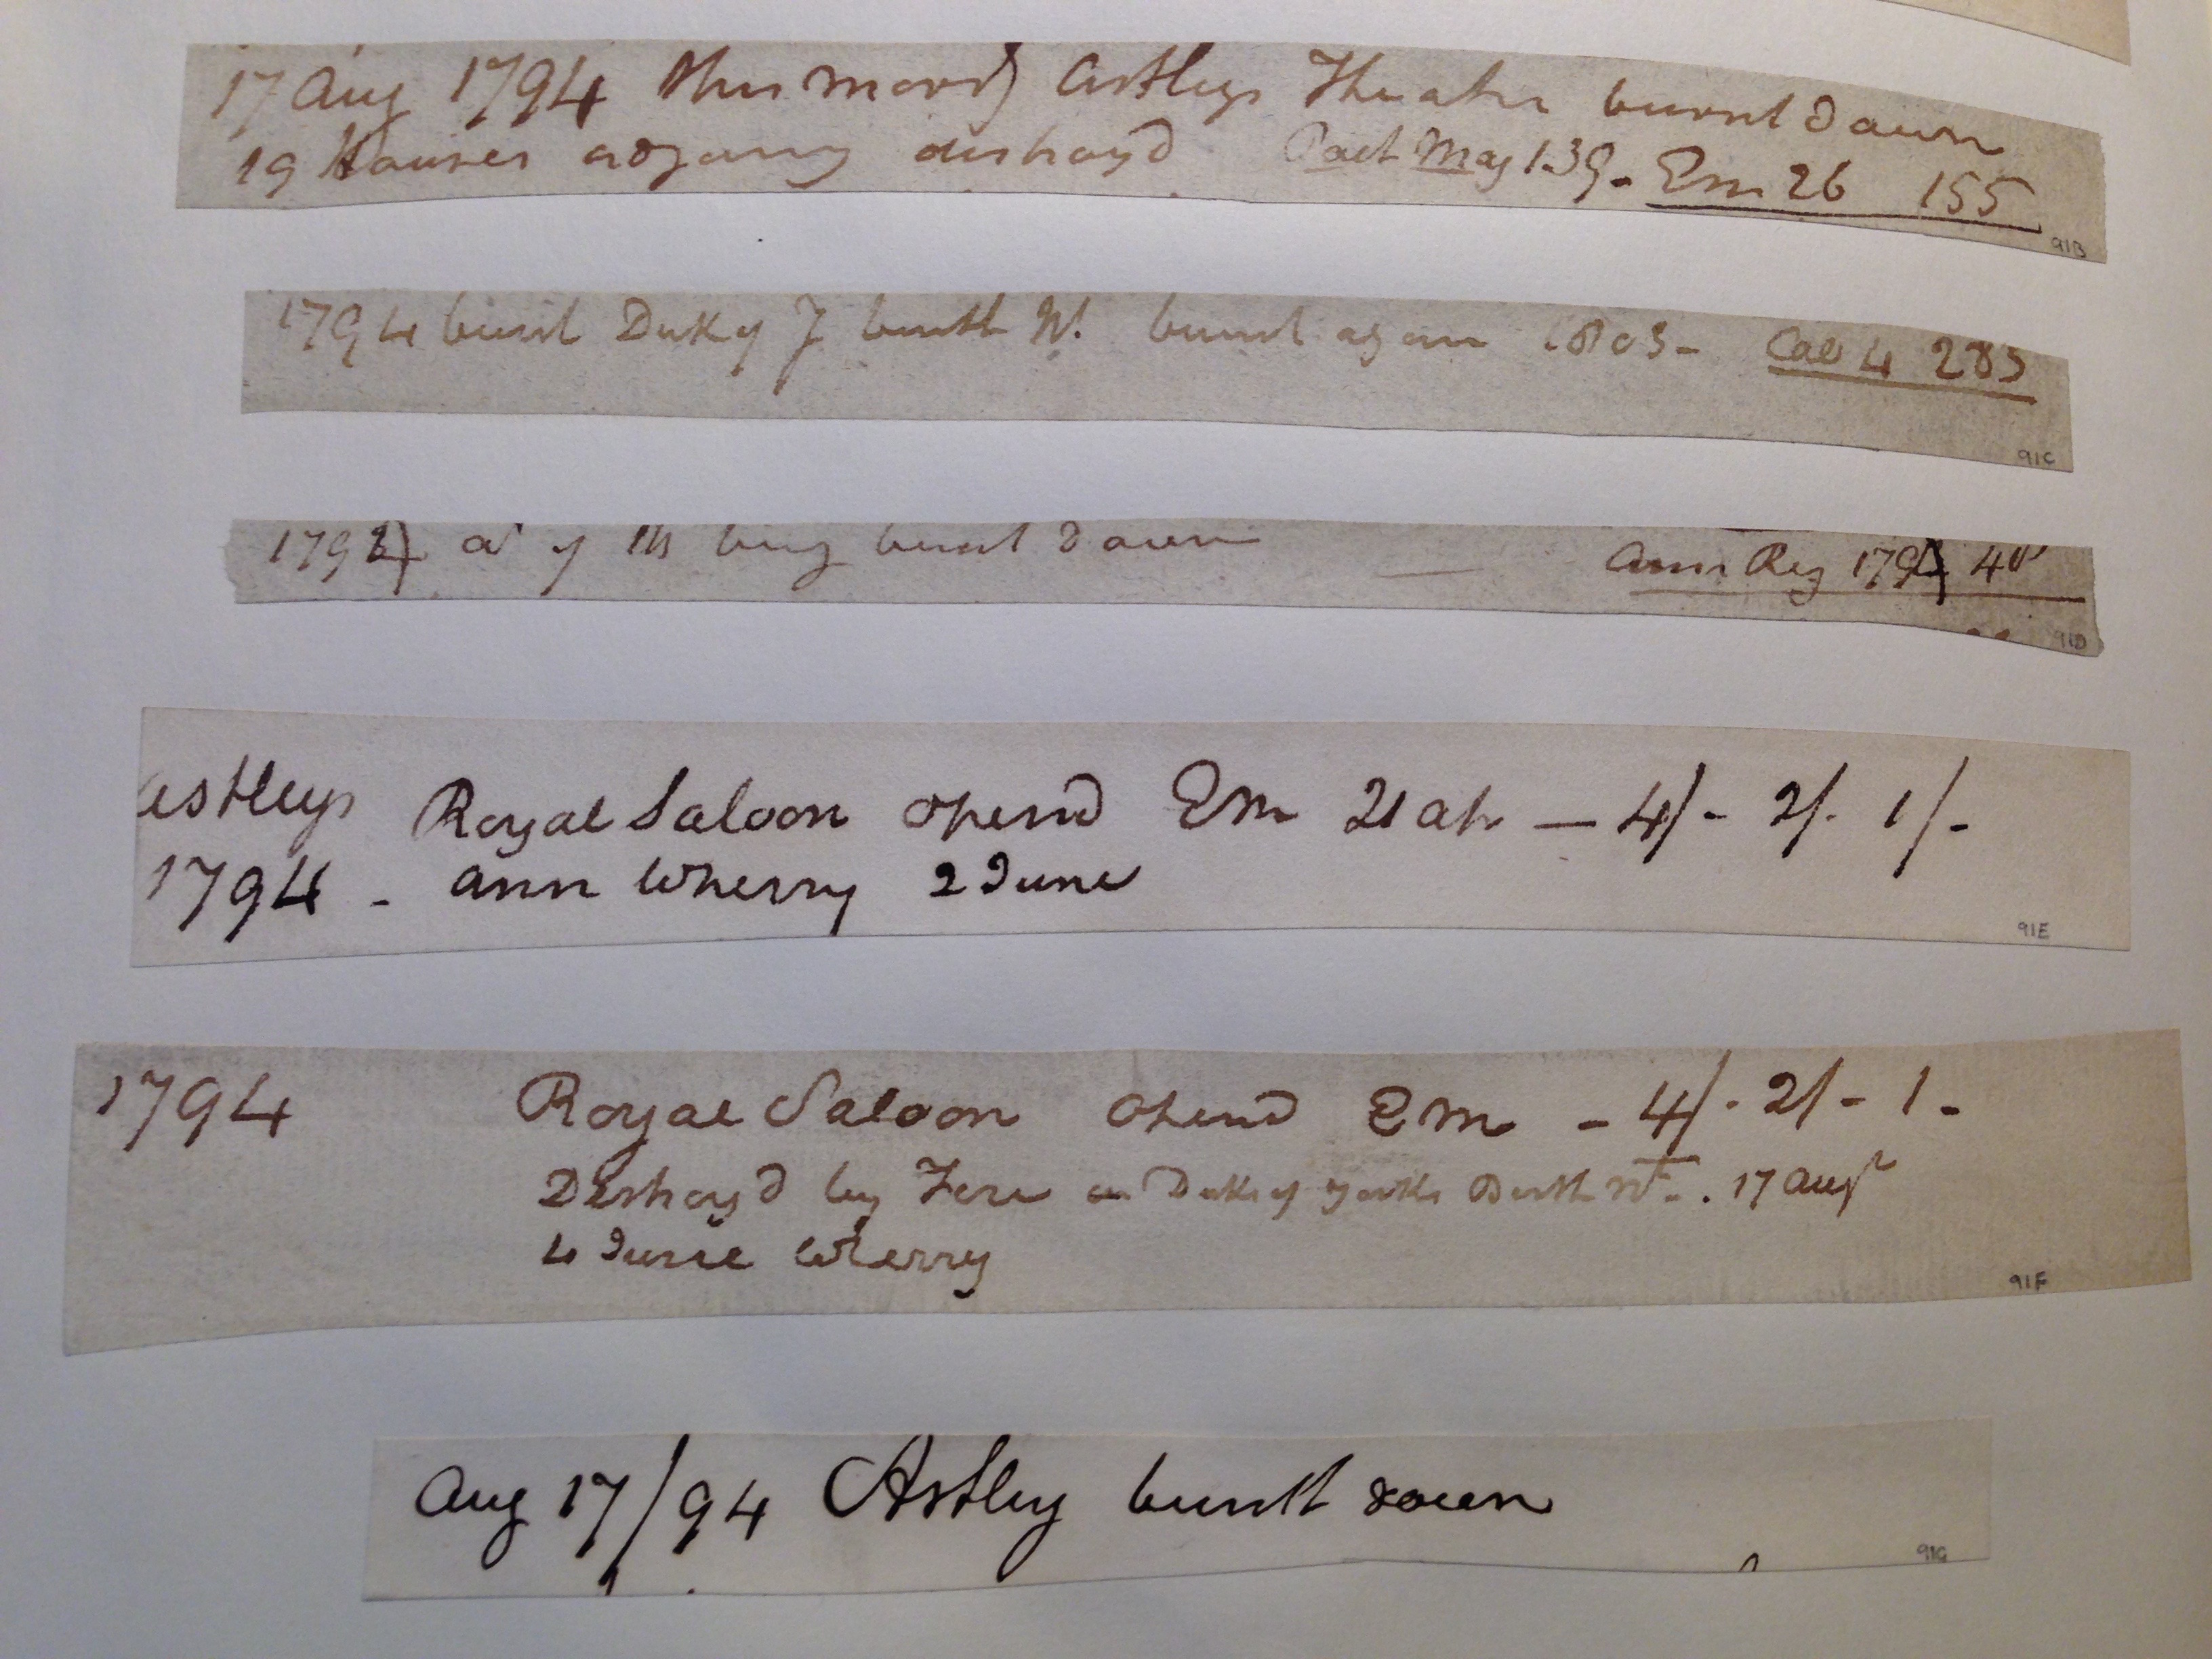 17 Aug 1794 this morng Astleys Theatre burnt down
19 Houses adjoing destroyd Pool Mag 1.39 - Em 26 155
91B
1794 burnt Duke of Y birth Nt. burnt again 1803 - Cab 4 283
91C
1794 of burnt down Ann Reg 1794 40
91D
Astleys Royal Saloon opend EM 21 Ap — 4/- 2/- 1/-
1794 - Ann Wherry 2 June
91E
1794 Royal Saloon opend EM - 4/- 2/- 1 -
Destroyd by Fire on Duke of Yorks Birth Nt. . 17 Augt
4 June Wherry
91F
Aug 17/94 Astley burnt down
91G